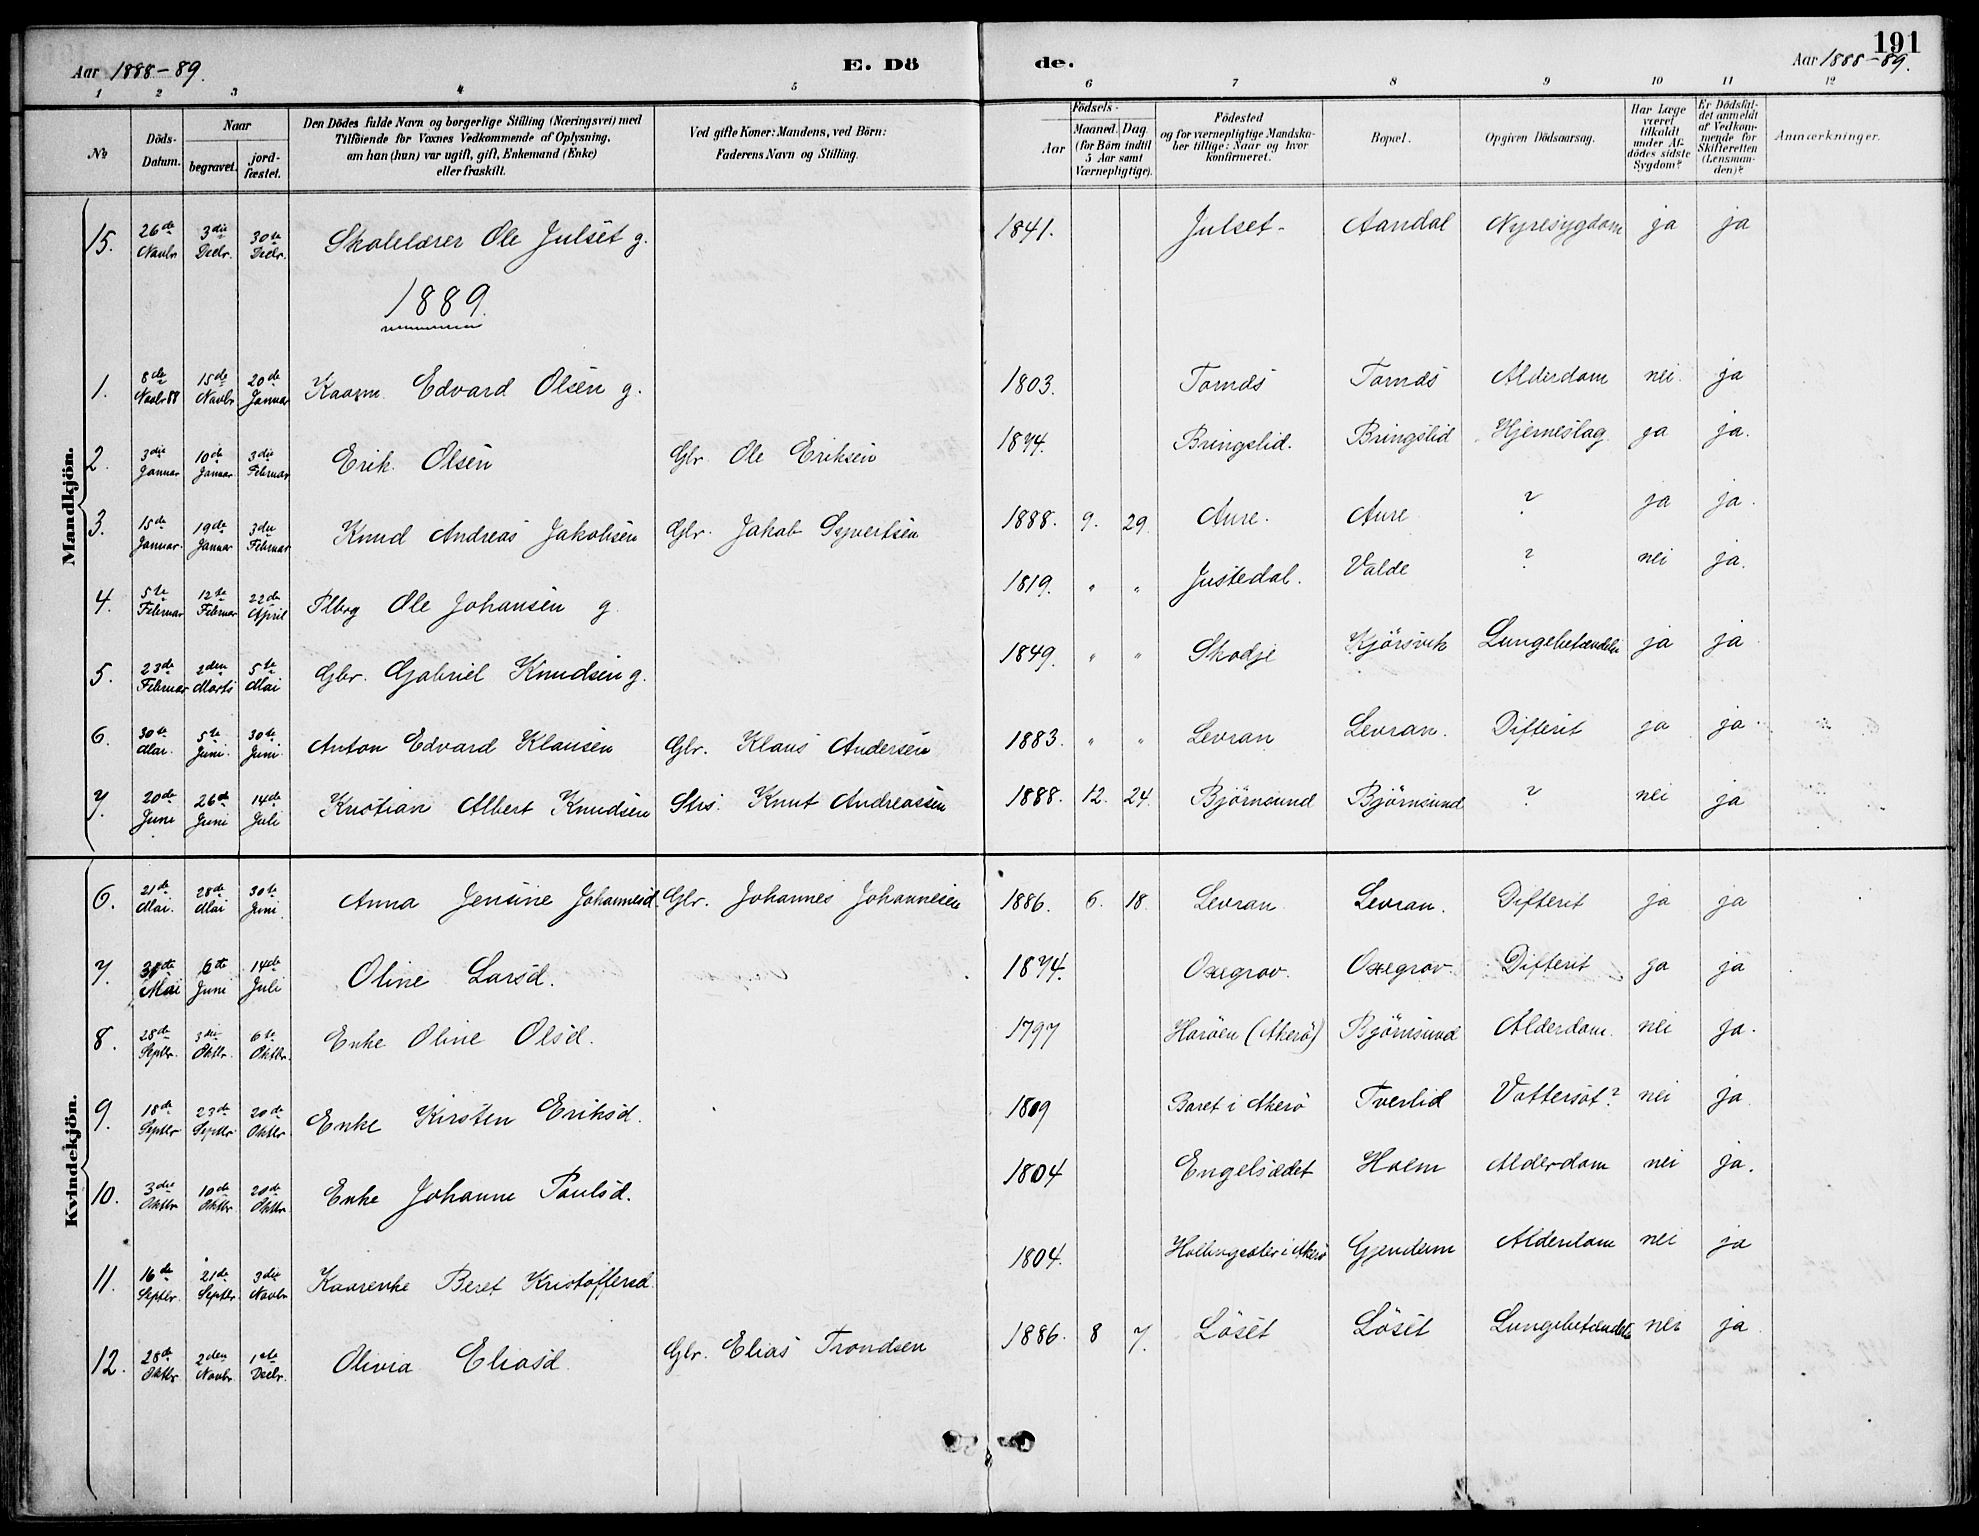 191
Aar 1888-89. E. Dö de. Aar 1888-89.
1 2 3 4 5 6 7 8 9 10 11 12
No
Döds-Datum.
Naar
begravet.
jord-fæstet.
Den Dödes fulde Navn og borgerlige Stilling (Næringsvei) med
Tilföiende for Voxnes Vedkommende af Oplysning,
om han (hun) var ugift, gift, Enkemand (Enke)
eller fraskilt.
Ved gifte Koner: Mandens, ved Börn:
Faderens Navn og Stilling.
Födsels-
Aar
Maaned. Dag
(for Börn indtil
5 Aar samt
Værnepligtige).
Födested
og for værnepligtige Mandska-
ber tillige: Naar og hvor
konfirmeret.
Bopæl.
Opgiven Dödsaarsag.
Har Læge
været
tilkaldt
under Af-
dödes sidste
Sygdom?
Er Dödsfal-
det anmeldt
af Vedkom-
mende for
Skifteretten
(Lensman-
den)?
Anmærkninger.
Mandkjön.
15. 26de Novbr 3die Decbr. 30te Decbr. Skolelærer Ole Julset g. 1841. Julset- Aandal Nyresygdom ja ja
1889.
1. 8de Novbr 88 15de Novbr 20de Januar Kaarm. Edvard Olsen g. 1803. Tornæs Tornæs Alderdom nei. ja
2. 3die Januar 10de Januar 3die Februar Erik. Olsen Gbr. Ole Eriksen 1874. Bringslid. Bringslid Hjerneslag ja ja.
3. 15de Januar. 19de Januar 3die Februar Knud Andreas Jakobsen Gbr. Jakob Syvertsen 1888. 9. 29. Aure. Aure ? ja ja.
4. 5te Februar 12te Februar 22de April Plbrg Ole Johansen g. 1819. " " Justedal. Valde ? nei ja.
5. 23de Februar 2den Marts 5te Mai Gbr. Gabriel Knudsen g. 1849. " " Skodje Kjörsvik Lungebetændelse ja ja
6. 30te Mai. 5te Juni. 30te Juni Anton Edvard Klausen Gbr. Klaus Andersen 1883. " " Levran Levran. Difterit ja ja.
7. 20de Juni 26de Juni 14de Juli Kristian Albert Knudsen Strs. Knut Andreassen 1888. 12. 24. Björnsund Björnsund ? nei ja
Kvindekjön.
6. 21de Mai. 28de Mai 30te Juni Anna Jensine Johannesd. Gbr. Johannes Johannesen 1886. 6. 18. Levran Levran. Difterit ja ja
7. 31de Mai 6te Juni 14de Juli Oline Larsd. 1874. Oxegrov. Oxegrov. Difterit ja ja
8. 28de Septbr. 3die Oktbr. 6te Oktbr. Enke Oline Olsd. 1797 Haröen (Akerö) Björnsund Alderdom. nei ja.
9. 18de Septbr 23de Septbr. 20de Oktbr. Enke Kirsten Eriksd. 1809 Baret i Akerö Tverlid Vattersot? nei ja
10. 3die Oktbr 10de Oktbr 20de Oktbr Enke Johanne Paulsd. 1804 Engelsædet Holm Alderdom nei ja.
11. 16de Septbr. 21de Septbr. 3die Novbr Kaarenke Beret Kristoffersd. 1804. Hollingsæter i Akerö Gjendem Alderdom nei ja
12. 28de Oktbr 2den Novbr. 1ste Decbr. Olivia Eliasd. Gbr. Elias Trondsen 1886. 8 7. Löset Löset Lungebetændelse nei ja